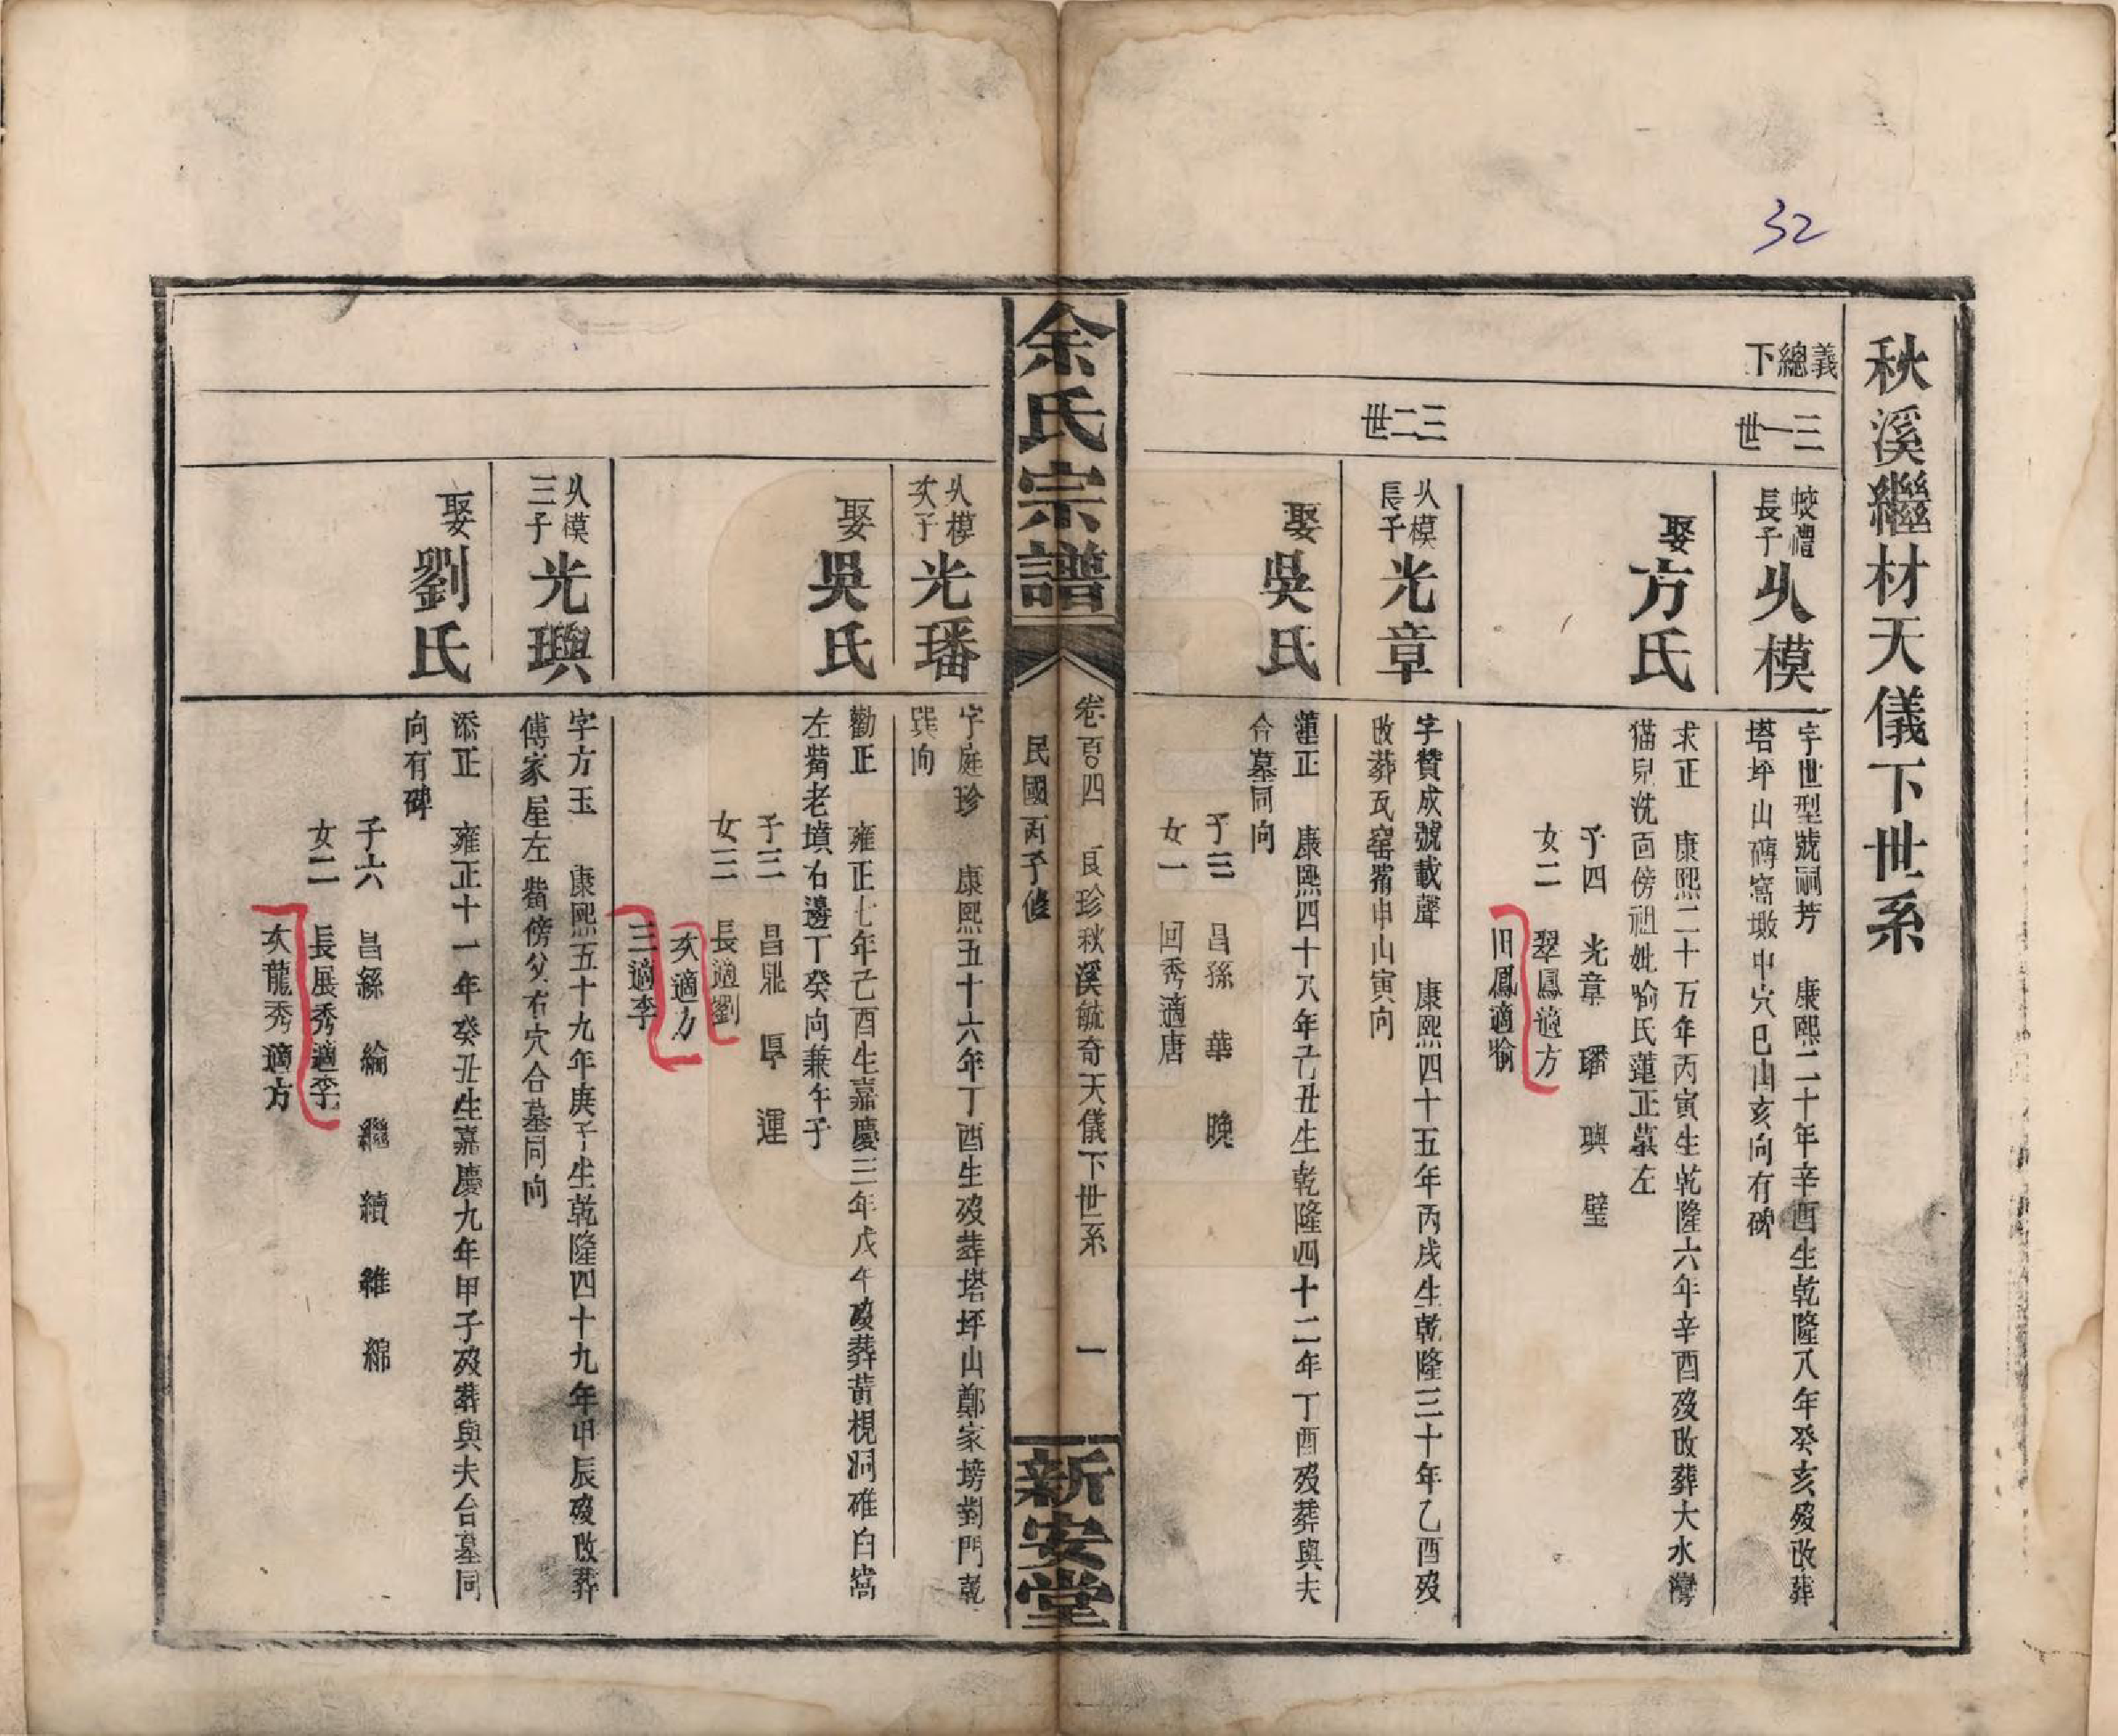 32
秋溪繼材天儀下世系
義總下
三一世
蛟禮長子
乆模
字世型號嗣芳 康熙二十年辛酉生乾隆八年癸亥歿改葬
塔坪山磚窩墩中穴巳山亥向有碑
娶方氏
求正 康熙二十五年丙寅生乾隆六年辛酉歿改葬大水灣
猫兒洗面傍祖妣喻氏蓮正墓左
子四 光章 璠 璵 璧
女二 翠鳳適方
旧鳳適喻
三二世
乆模長子
光章
字贊成號載聲 康熙四十五年丙戌生乾隆三十年乙酉歿
改葬瓦窰觜申山寅向
娶吳氏
蓮正 康熙四十八年己丑生乾隆四十二年丁酉歿葬與夫
合墓同向
子三 昌孫 華 晚
女一 回秀適唐
余氏宗譜
卷百四 良珍秋溪毓奇天儀下世系 一
民國丙子修
新安堂
乆模次子
光璠
字庭珍 康熙五十六年丁酉生歿葬塔坪山鄭家塝對門乾
巽向
娶吳氏
勸正 雍正七年己酉生嘉慶三年戊午歿葬黃梘洞碓臼窩
左觜老墳右邊丁癸向兼午子
子三 昌鼎 厚 運
女三 長適劉
次適方
三適李
乆模三子
光璵
字方玉 康熙五十九年庚子生乾隆四十九年甲辰歿改葬
傅家屋左觜傍父右穴合墓同向
娶劉氏
添正 雍正十一年癸丑生嘉慶九年甲子歿葬與夫合墓同
向有碑
子六 昌繇 綸 繼 續 維 綿
女二 長展秀適李
次龍秀適方